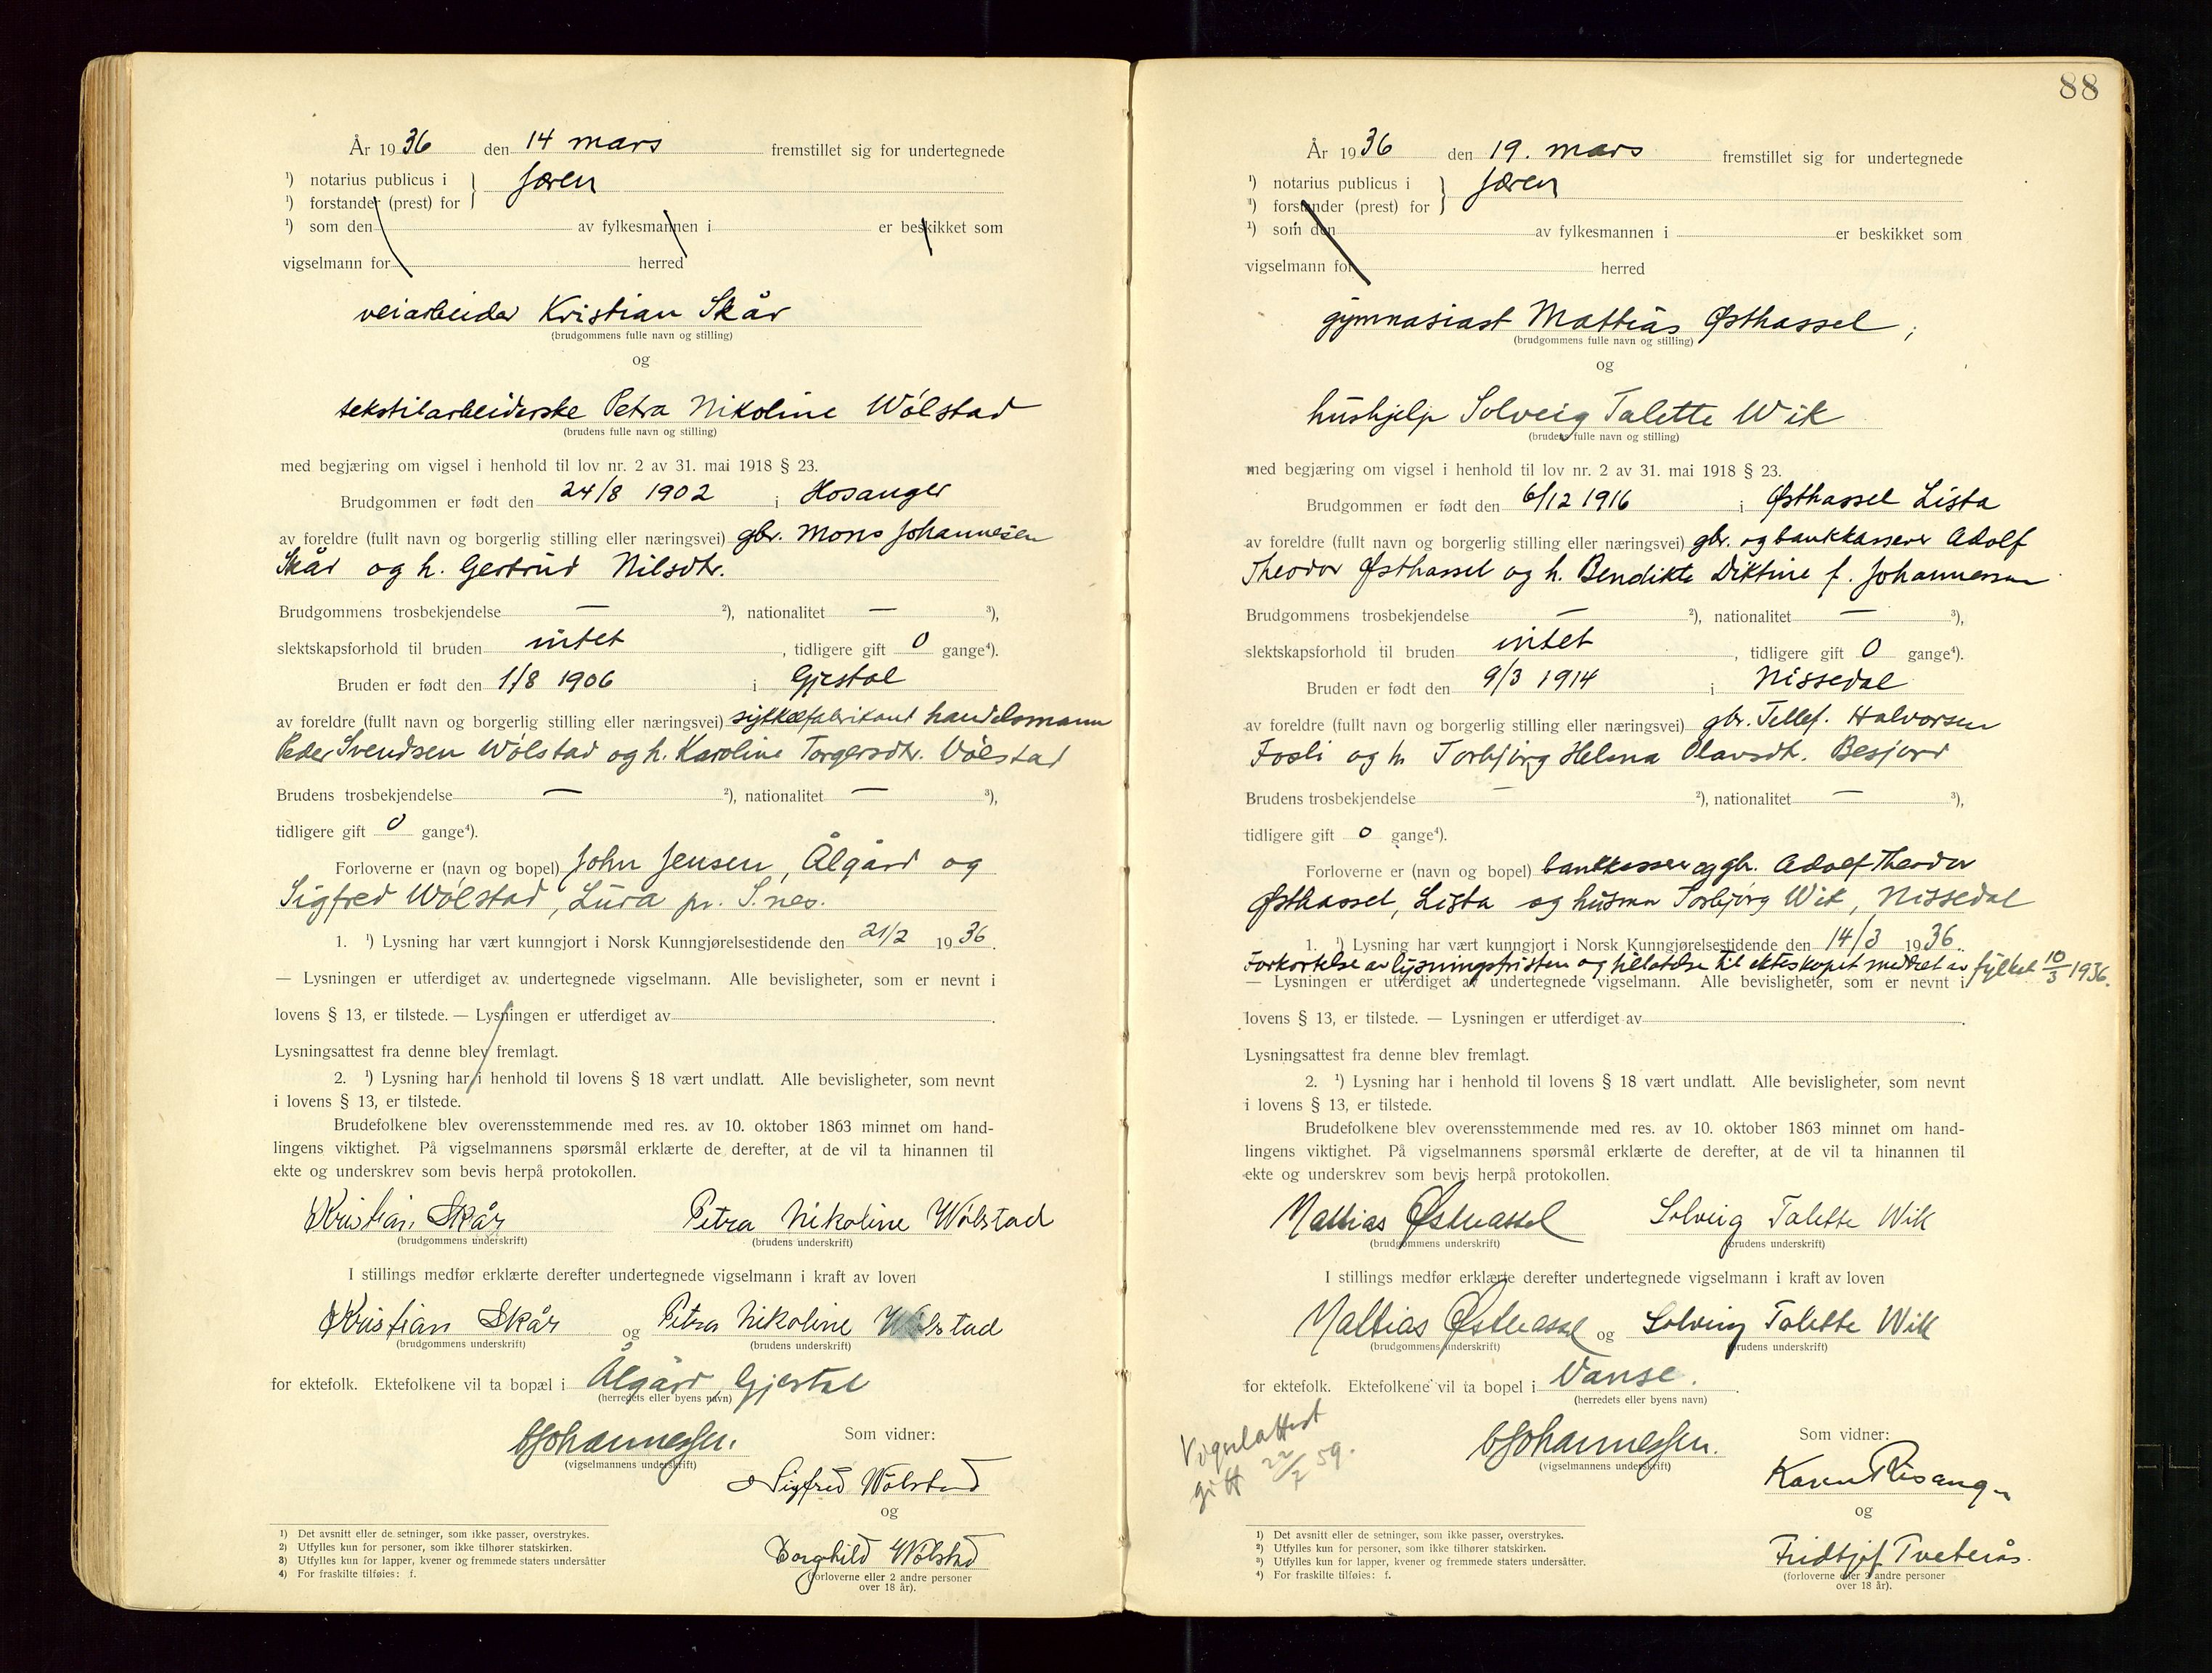 År 1936 den 14 mars fremstillet sig for undertegnede
¹) notarius publicus i } Jæren
¹) forstander (prest) for
¹) som den av fylkesmannen i er beskikket som
vigselmann for herred
veiarbeider Kristian Skår
(brudgommens fulle navn og stilling)
og
tekstilarbeiderske Petra Nikoline Wölstad
(brudens fulle navn og stilling)
med begjæring om vigsel i henhold til lov nr. 2 av 31. mai 1918 § 23.
Brudgommen er født den 24/8 1902 i Hosanger
av foreldre (fullt navn og borgerlig stilling eller næringsvei) gbr. Mons Johannesen
Skår og h. Gertrud Nilsdtr.
Brudgommens trosbekjendelse — ²), nationalitet — ³),
slektskapsforhold til bruden intet, tidligere gift 0 gange⁴).
Bruden er født den 1/8 1906 i Gjestal
av foreldre (fullt navn og borgerlig stilling eller næringsvei) sykkelfabrikant handelsmann
Peder Svendsen Wölstad og h. Karoline Torgersdtr. Völstad
Brudens trosbekjendelse — ²), nationalitet — ³),
tidligere gift 0 gange⁴).
Forloverne er (navn og bopel) John Jensen, Ålgård og
Sigfred Wölstad, Lura pr. S.nes.
1. ¹) Lysning har vært kunngjort i Norsk Kunngjørelsestidende den 21/2 1936.
— Lysningen er utferdiget av undertegnede vigselmann. Alle bevisligheter, som er nevnt i
lovens § 13, er tilstede. — Lysningen er utferdiget av .
Lysningsattest fra denne blev fremlagt.
2. ¹) Lysning har i henhold til lovens § 18 vært undlatt. Alle bevisligheter, som nevnt
i lovens § 13, er tilstede.
Brudefolkene blev overensstemmende med res. av 10. oktober 1863 minnet om hand-
lingens viktighet. På vigselmannens spørsmål erklærte de derefter, at de vil ta hinannen til
ekte og underskrev som bevis herpå protokollen.
Kristian Skår Petra Nikoline Wölstad
(brudgommens underskrift) (brudens underskrift)
I stillings medfør erklærte derefter undertegnede vigselmann i kraft av loven
Kristian Skår og Petra Nikoline Wölstad
(brudgommens underskrift) (brudens underskrift)
for ektefolk. Ektefolkene vil ta bopæl i Ålgård, Gjestal
(herredets eller byens navn)
Johannessen.
(vigselmannens underskrift)
Som vidner:
Sigfred Wölstad
og
Borghild Wölstad
(forloverne eller 2 andre personer
over 18 år).
1) Det avsnitt eller de setninger, som ikke passer, overstrykes.
2) Utfylles kun for personer, som ikke tilhører statskirken.
3) Utfylles kun for lapper, kvener og fremmede staters undersåtter
4) For fraskilte tilføies: f.
88
År 1936 den 19. mars fremstillet sig for undertegnede
¹) notarius publicus i } Jæren
¹) forstander (prest) for
¹) som den av fylkesmannen i er beskikket som
vigselmann for herred
gymnasiast Mathias Østhassel,
(brudgommens fulle navn og stilling)
og
hushjelp Solveig Talette Wik
(brudens fulle navn og stilling)
med begjæring om vigsel i henhold til lov nr. 2 av 31. mai 1918 § 23.
Brudgommen er født den 6/12 1916 i Østhassel Lista
av foreldre (fullt navn og borgerlig stilling eller næringsvei) gbr. og bankkasserer Adolf
Theodor Østhassel og h. Bendikte Diktine f. Johannessen
Brudgommens trosbekjendelse — ²), nationalitet — ³),
slektskapsforhold til bruden intet, tidligere gift 0 gange⁴).
Bruden er født den 9/3 1914 i Nissedal
av foreldre (fullt navn og borgerlig stilling eller næringsvei) gbr. Tellef. Halvorsen
Fosli og h Torbjørg Helena Olavsdtr. Besjord
Brudens trosbekjendelse — ²), nationalitet — ³),
tidligere gift 0 gange⁴).
Forloverne er (navn og bopel) bankkasserer og gbr. Adolf Theodor
Østhassel, Lista og husmor Torbjørg Wik, Nissedal
1. ¹) Lysning har vært kunngjort i Norsk Kunngjørelsestidende den 14/3 1936.
Forkortelse av lysningsfristen og tillatelse til ekteskapet meddelt av fylket 10/3 1936.
— Lysningen er utferdiget av undertegnede vigselmann. Alle bevisligheter, som er nevnt i
lovens § 13, er tilstede. — Lysningen er utferdiget av .
Lysningsattest fra denne blev fremlagt.
2. ¹) Lysning har i henhold til lovens § 18 vært undlatt. Alle bevisligheter, som nevnt
i lovens § 13, er tilstede.
Brudefolkene blev overensstemmende med res. av 10. oktober 1863 minnet om hand-
lingens viktighet. På vigselmannens spørsmål erklærte de derefter, at de vil ta hinannen til
ekte og underskrev som bevis herpå protokollen.
Mathias Østhassel Solveig Talette Wik
(brudgommens underskrift) (brudens underskrift)
I stillings medfør erklærte derefter undertegnede vigselmann i kraft av loven
Mathias Østhassel og Solveig Talette Wik
(brudgommens underskrift) (brudens underskrift)
for ektefolk. Ektefolkene vil ta bopel i Vanse.
(herredets eller byens navn)
Vigselattest
gitt 22/7 59.
Johannessen.
(vigselmannens underskrift)
Som vidner:
Karen Risanger
og
Fridtjof Tveterås.
(forloverne eller 2 andre personer
over 18 år).
¹) Det avsnitt eller de setninger, som ikke passer, overstrykes.
²) Utfylles kun for personer, som ikke tilhører statskirken.
³) Utfylles kun for lapper, kvener og fremmede staters undersåtter.
⁴) For fraskilte tilføies: f.